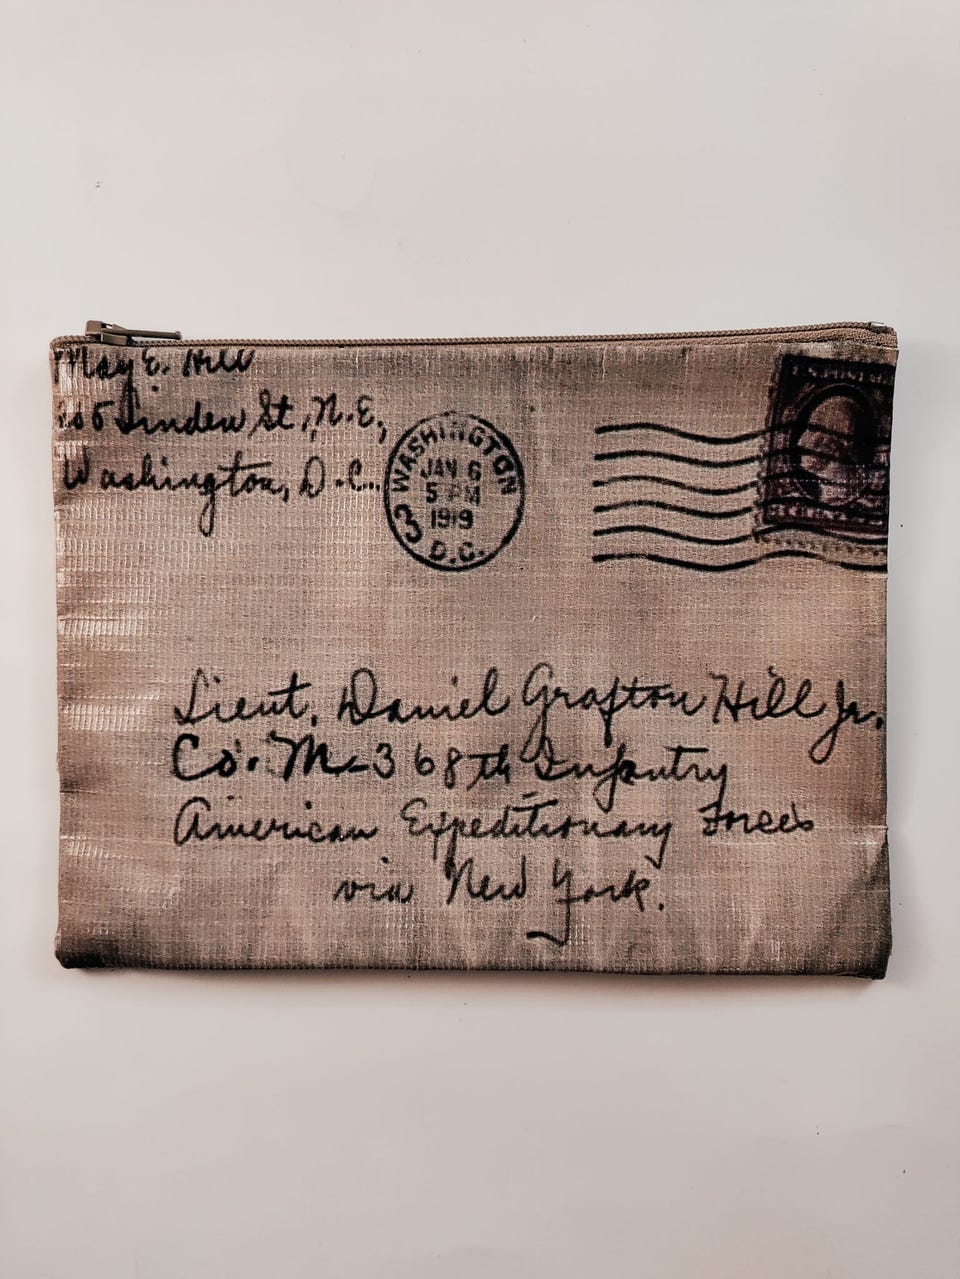 May E. Hill
Linden St, N.E,
Washington, D.C.
WASHINGTON
JAN 6
5 PM
1919
3 D.C.
Lieut. Daniel Grafton Hill Jr.
Co. M-368th Infantry
American Expeditionary Forces
via New York.